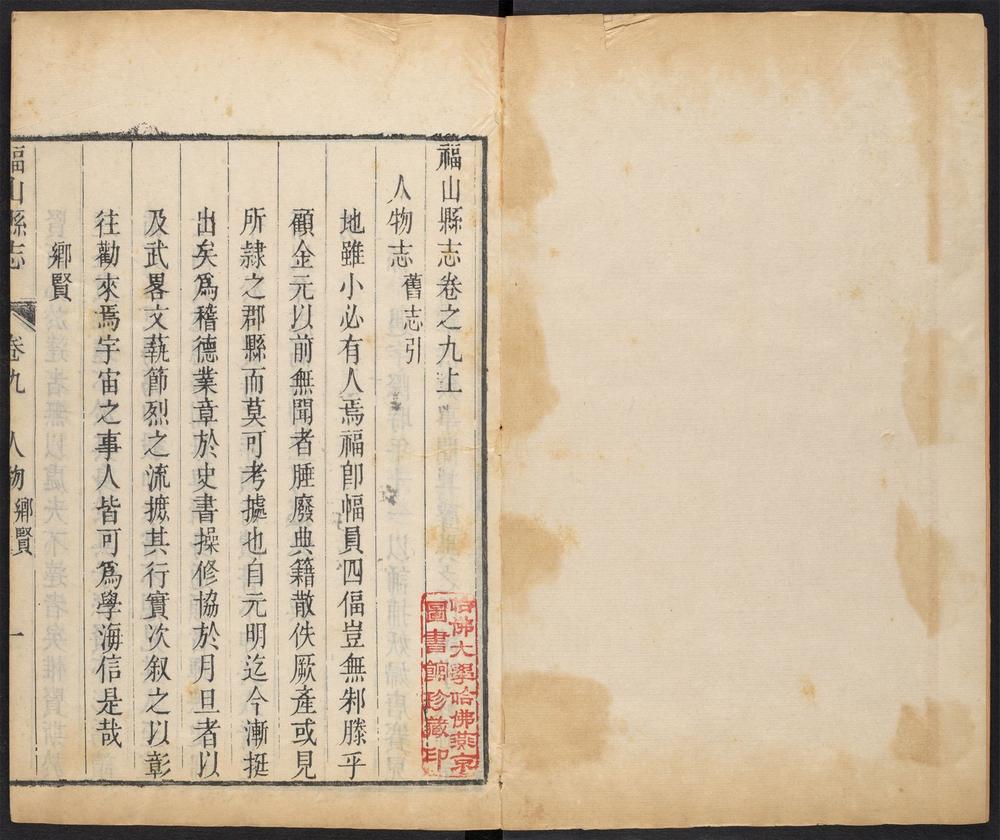 福山縣志卷之九上
人物志 舊志引
地雖小必有人焉福卽幅員四偪豈無邾滕乎
顧金元以前無聞者腄廢典籍散佚厥產或見
所隷之郡縣而莫可考據也自元明迄今漸挺
出矣爲稽德業章於史書操修協於月旦者以
及武畧文蓺節烈之流摭其行實次叙之以彰
往勸來焉宇宙之事人皆可爲學海信是哉
鄉賢
福山縣志 卷九 人物 鄉賢 一
哈佛大學哈佛燕京
圖書館珍藏印